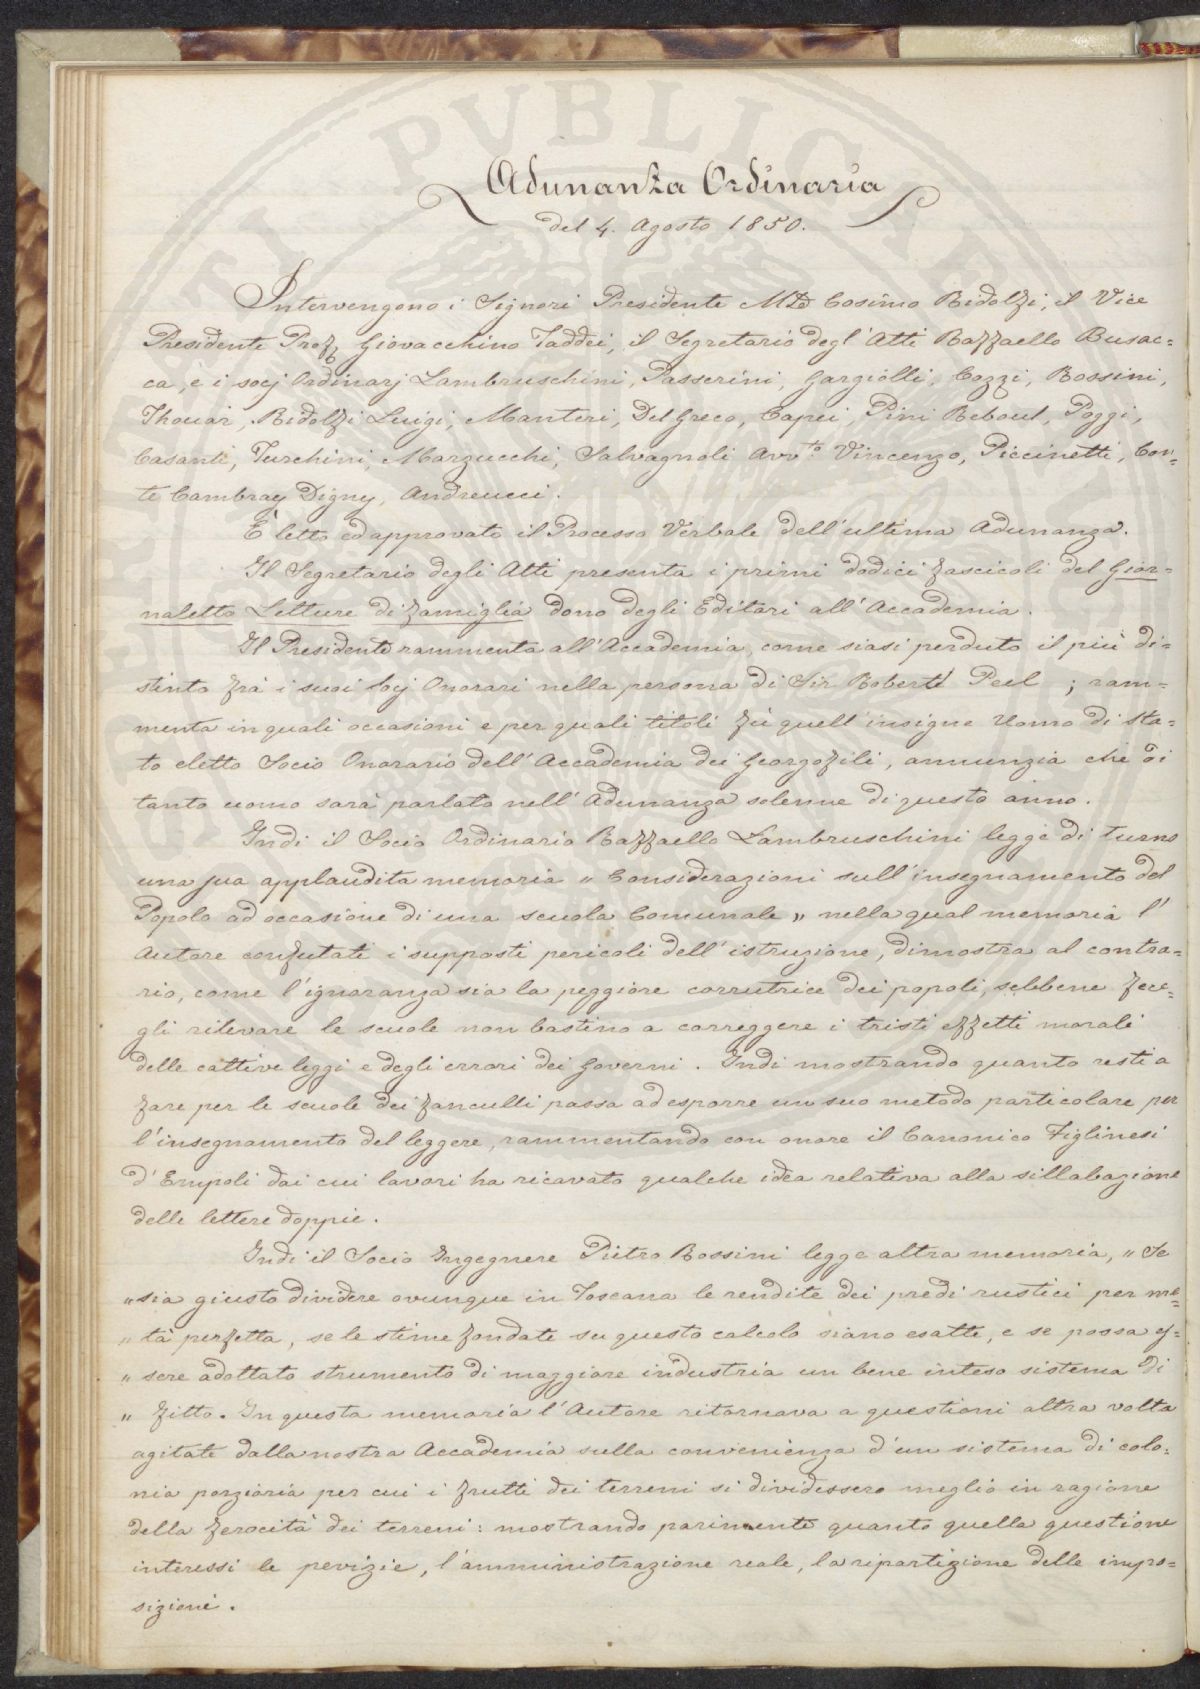 Adunanza Ordinaria
del 4. Agosto 1850.
Intervengono i Signori Presidente Mse Cosimo Ridolfi, il Vice
Presidente Prof. Giovacchino Taddei, il Segretario degl'Atti Raffaello Busac=
ca, e i socj Ordinarj Lambruschini, Passerini, Gargiolli, Cozzi, Rossini,
Thouar, Ridolfi Luigi, Manteri, Del Greco, Capei, Pini Reboul, Poggi,
Casanti, Turchini, Marzucchi, Salvagnoli Avvto Vincenzo, Piccinetti, Con=
te Cambray Digny, Andreucci.
È letto ed approvato il Processo Verbale dell'ultima Adunanza.
Il Segretario degli Atti presenta i primi dodici fascicoli del Gior=
naletto Letture di famiglia dono degli Editori all'Accademia.
Il Presidente rammenta all'Accademia, come siasi perduto il più di=
stinto frà i suoi Socj Onorari nella persona di Sir Robert Peel ; ram=
menta in quali occasioni e per quali titoli fù quell'insigne Uomo di Sta=
to eletto Socio Onorario dell'Accademia dei Georgofili, annunzia che di
tanto uomo sarà parlato nell'Adunanza solenne di questo anno.
Indi il Socio Ordinario Raffaello Lambruschini legge di turno
una sua applaudita memoria " Considerazioni sull'insegnamento del
Popolo ad occasione di una scuola Comunale " nella qual memoria l'
Autore confutati i supposti pericoli dell'istruzione, dimostra al contra=
rio, come l'ignoranza sia la peggiore corrutrice dei popoli, sebbene fece=
gli rilevare le scuole non bastino a correggere i tristi effetti morali
delle cattive leggi e degli errori dei Governi. Indi mostrando quanto resti a
fare per le scuole dei fanculli passa ad esporre un suo metodo particolare per
l'insegnamento del leggere, rammentando con onore il Canonico Figlinesi
d'Empoli dai cui lavori ha ricavato qualche idea relativa alla sillabazione
delle lettere doppie.
Indi il Socio Ingegnere Pietro Rossini legge altra memoria, " Se
" sia giusto dividere ovunque in Toscana le rendite dei predi rustici per me=
" tà perfetta, se le stime fondate su questo calcolo siano esatte, e se possa es=
" sere adottato strumento di maggiore industria un bene inteso sistema di
" fitto. In questa memoria l'Autore ritornava a questioni altra volta
agitate dalla nostra Accademia sulla convenienza d'un sistema di colo=
nia parziaria per cui i frutti dei terreni si dividessero meglio in ragione
della ferocità dei terreni: mostrando parimente quanto quella questione
interessi le perizie, l'amministrazione reale, la ripartizione delle impo=
sizioni.